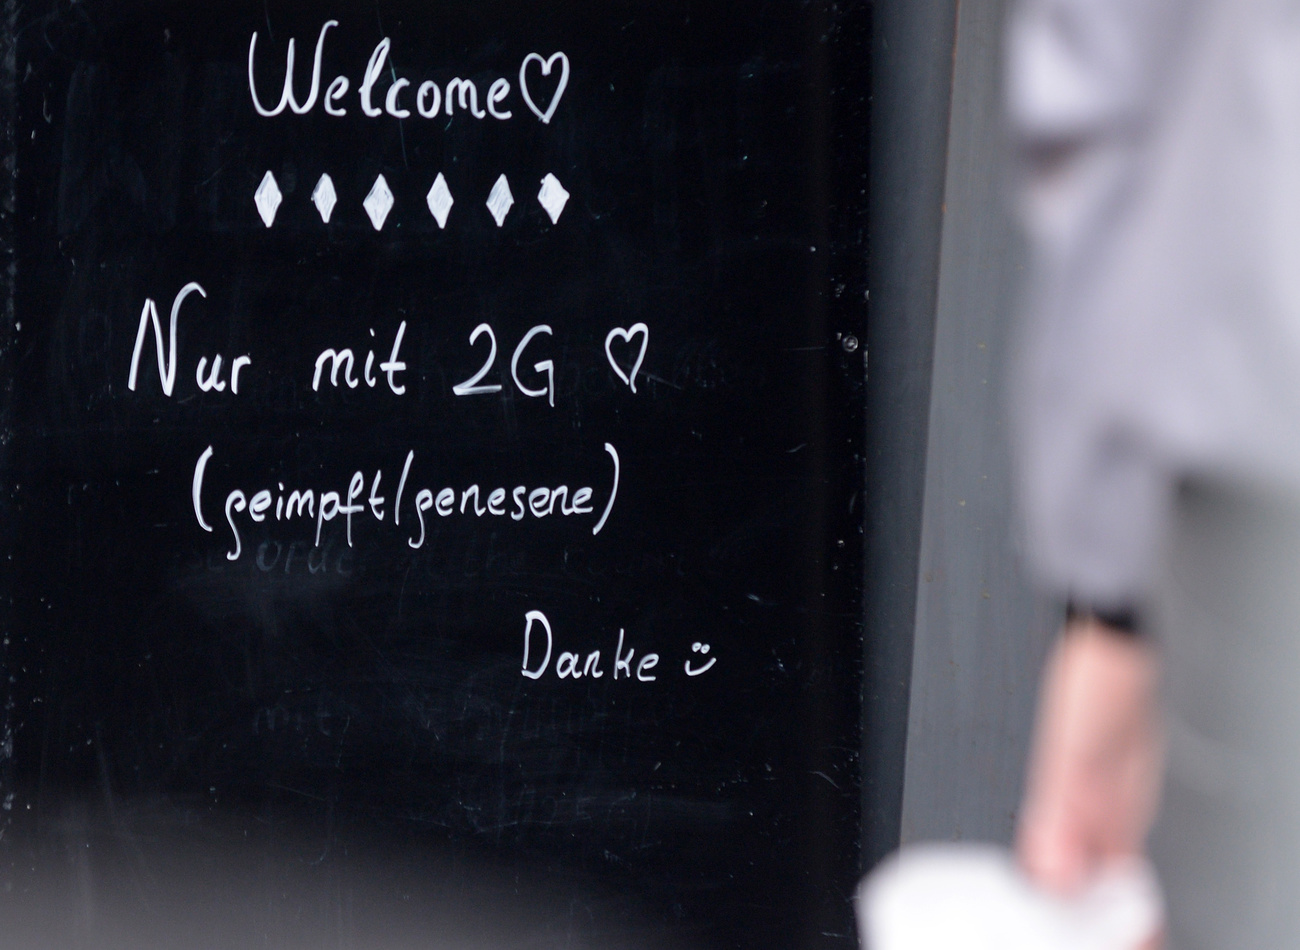 Welcome♡
♦ ♦ ♦ ♦ ♦ ♦
Nur mit 2G ♡
(geimpft/genesene)
Danke :)